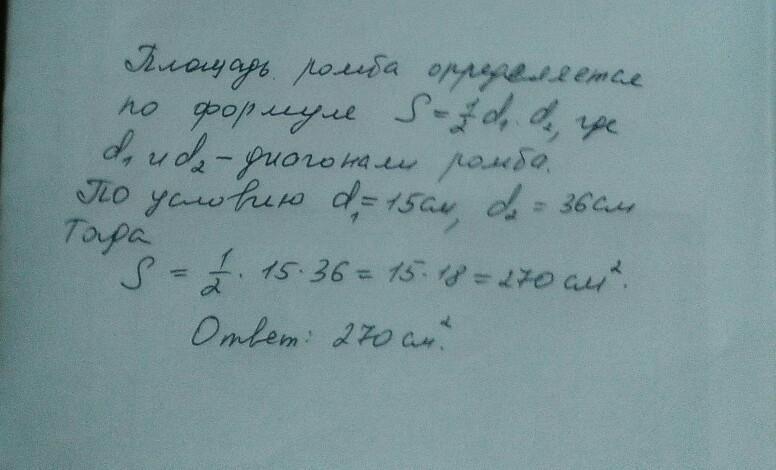 Площадь ромба определяется
по формуле S = 1/2 d₁ · d₂, где
d₁ и d₂ – диогонали ромба.
По условию d₁ = 15см, d₂ = 36см
Тогда
S = 1/2 · 15 · 36 = 15 · 18 = 270 см².
Ответ: 270 см².